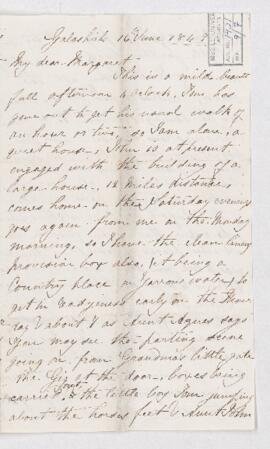 Galashiels 16 June 184
My dear Margaret
This is a mild beauti
full afternoon 4 oclock, Tom has
gone out to get his usual walk of
an hour or two, so I am alone, a
quiet house, John is at present
engaged with the building of a
large house, 12 miles distance,
comes home on the Saturday evening
goes again from me on the Monday
morning, so I have the clean linen,
Provision box also, it being a
Country place on Yarrow water, to
get in readyness early on the Mon
day about 8 as Aunt Agnes says
You may see the parting scene
going on, from Grandmas little gate
the Gig at the door, boxes being
carried out & the little boy Tom jumping
about the horses feet & Aunt John